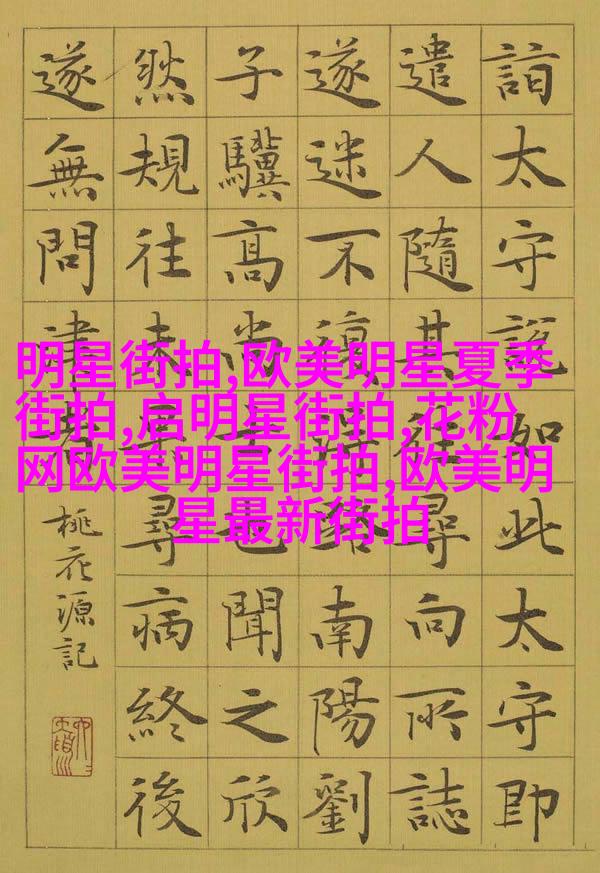 明星街拍,欧美明星夏季
街拍,启明星街拍,花粉
网欧美明星街拍,欧美明
星最新街拍
詣太守說如此太守即
遣人隨其往尋向所誌
遂迷不復得路南陽劉
子驥髙尚士也聞之欣
然規往未果尋病終後
遂無問津者
桃花源記